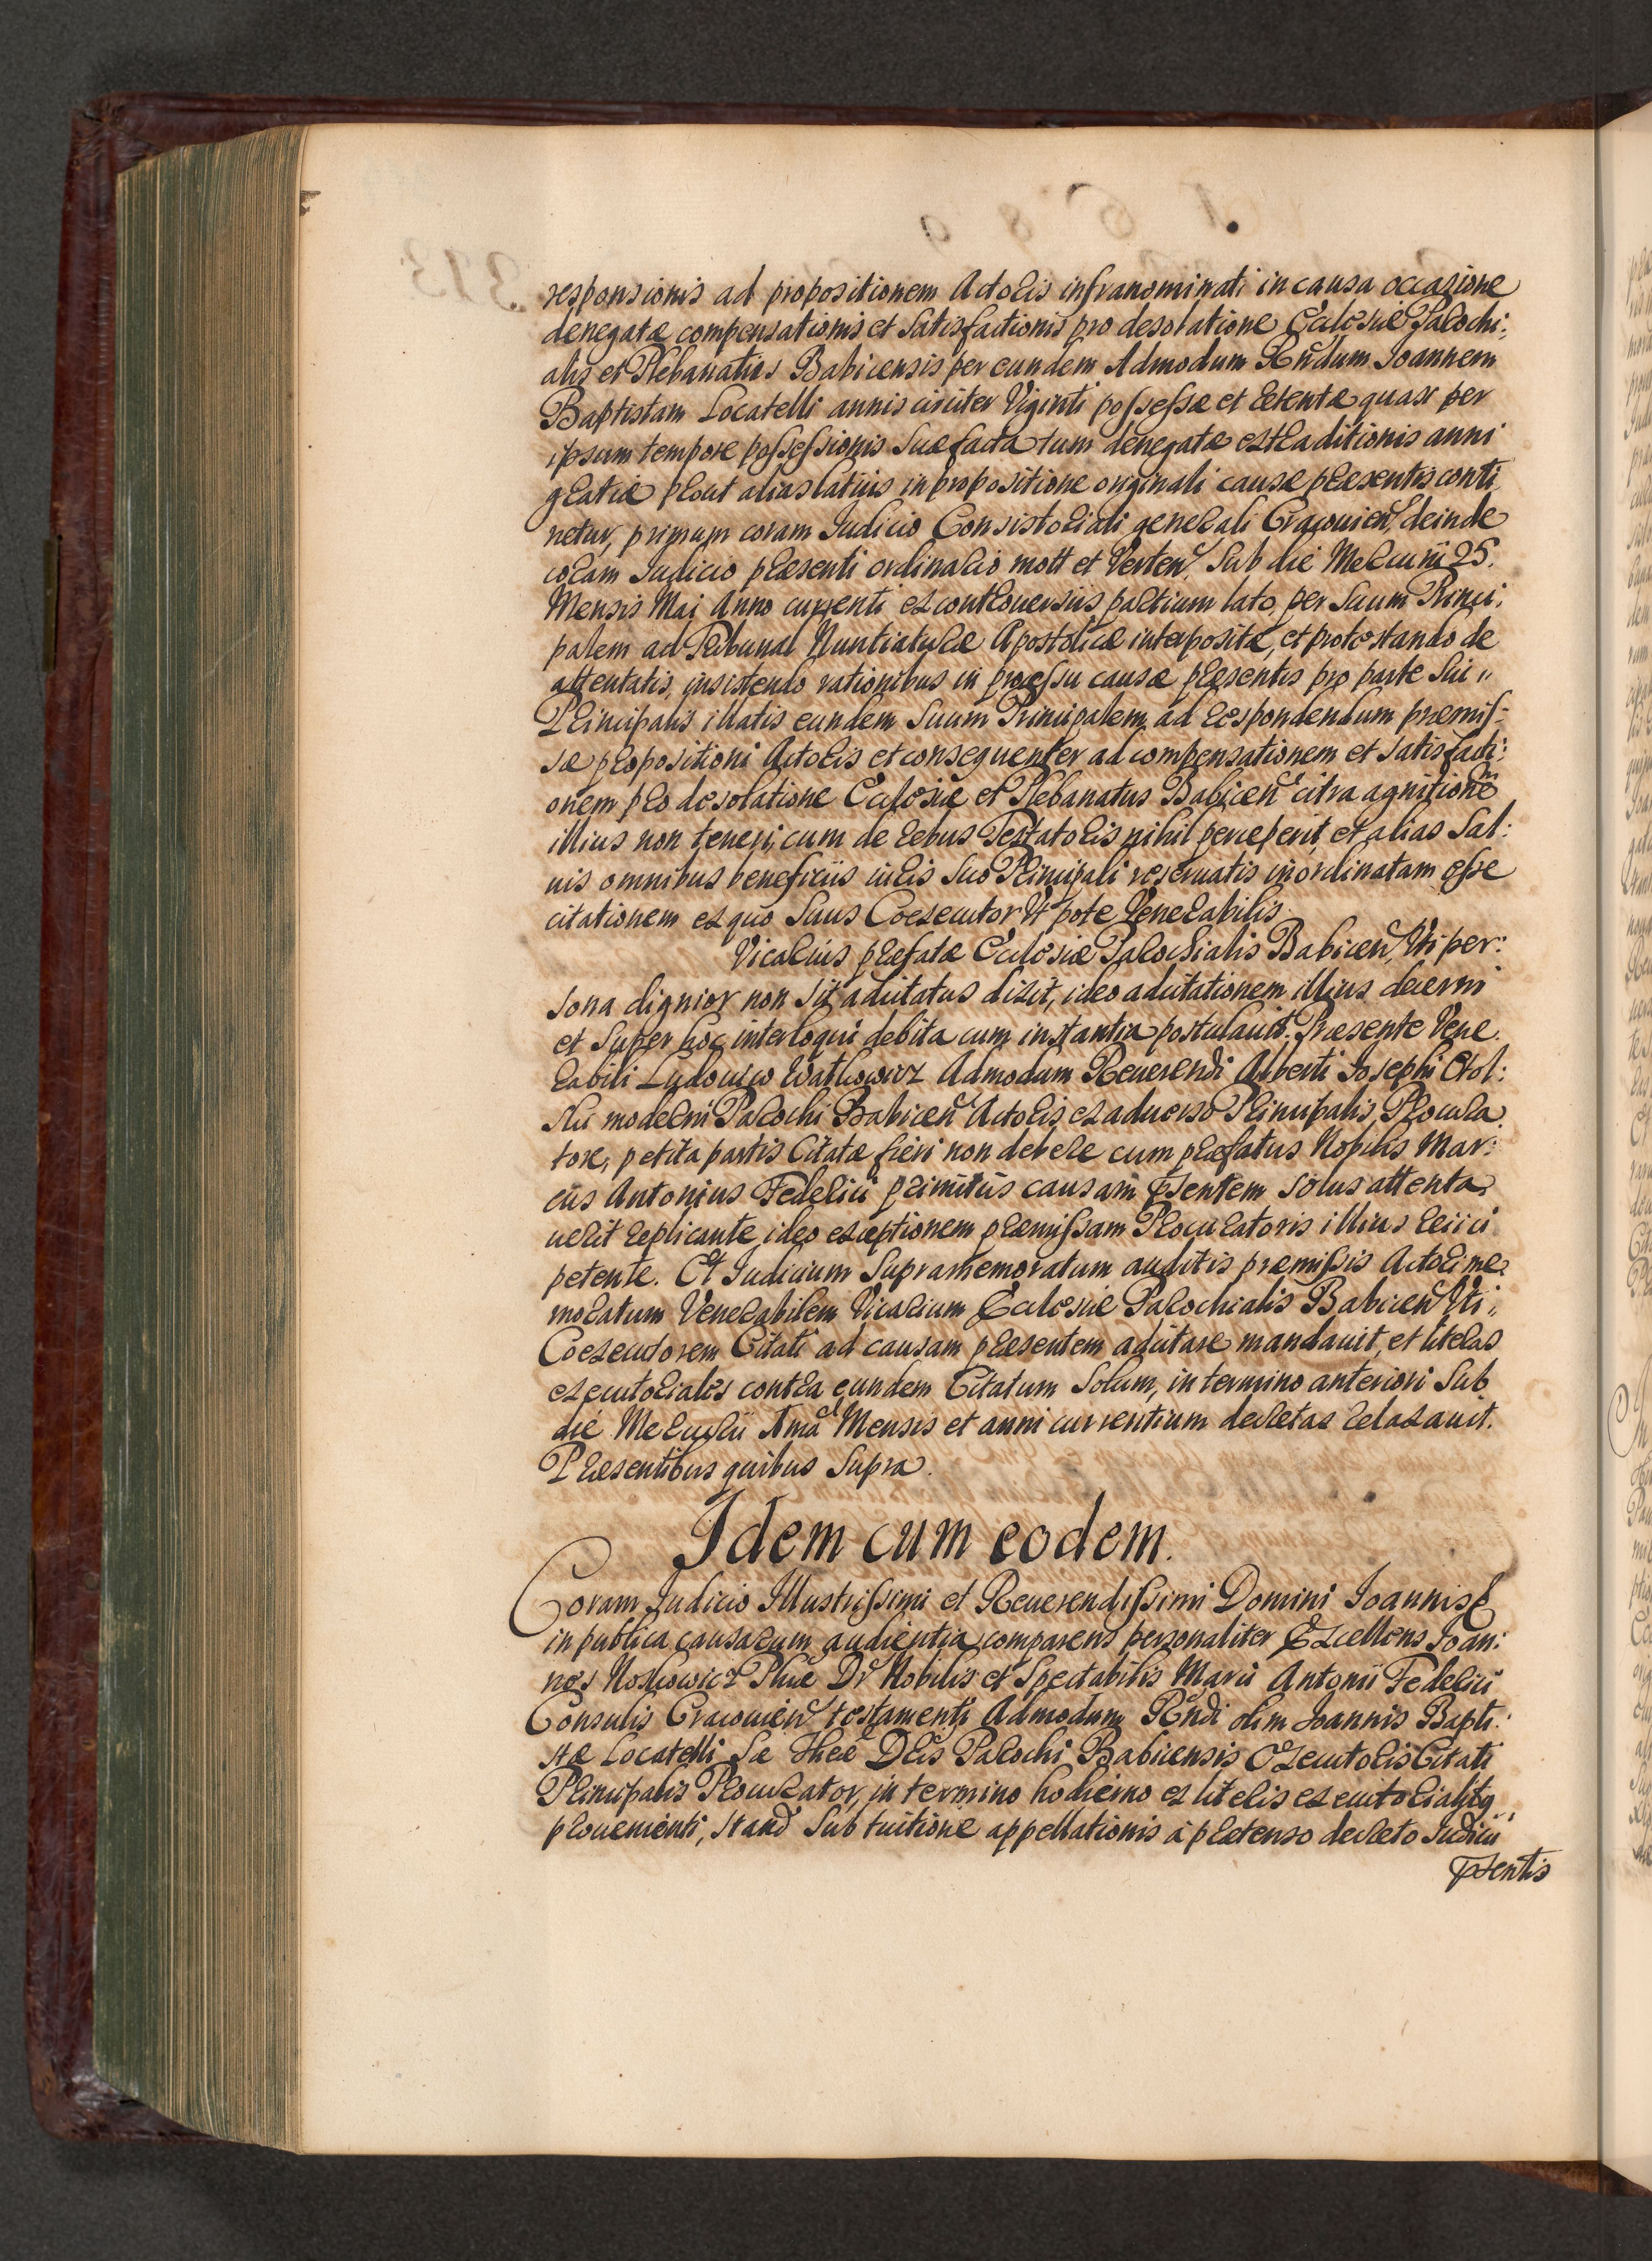 responsionis ad propositionem Actoris infranominati in causa occasione
denegatæ compensationis et satisfactionis pro desolatione Ecclesiæ Parochi:
alis et Plebanatus Babicensis per eundem Admodum Rndum Joannem
Baptistam Locatelli annis circiter Viginti possessæ et retentæ quasi per
ipsum tempore possessionis suæ facta tum denegatæ extraditionis anni
gratiæ prout alias latius in propositione originali causæ præsentis conti
netur, primum coram Judicio Consistoriali generali Cracouien, deinde
coram Judicio præsenti ordinario mott et Verten. Sub die Mercurii 25.
Mensis Maj Anno currenti ex controuersiis partium lato, per Suum Princi:
palem ad Tribunal Nuntiaturæ Apostolicæ interposita, et protestando de
attentatis, insistendo rationibus in processu causæ præsentis pro parte Sui
Principalis illatis eundem Suum Principalem ad respondendum præmis-
sæ propositioni Actoris et consequenter ad compensationem et satisfacti:
onem pro desolatione Ecclesiæ et Plebanatus Babicen citra agnitione
illius non teneri, cum de rebus Testatoris nihil perceperit, et alias Sal:
uis omnibus beneficiis iuris suo Principali reseruatis inordinatam esse
citationem ex quo Suus Coexecutor Vt pote Venerabilis
Vicarius præfatæ Ecclesiæ Parochialis Babicen, Vti per:
sona dignior non sit adcitatus dixit, ideo adcitationem illius decerni
et Super hoc interloqui debita cum instantia postulauit. Præsente Vene
rabili Ludouico Watkowicz Admodum Reuerendi Alberti Josephi
moderni Parochi Babicen Actoris ex aduerso Principalis, Procura
tore, petita partis Citatæ fieri non debere cum præfatus Nobilis Mar:
cus Antonius Federici primitus causam psentem solus attenta
uerit replicante, ideo exceptionem præmissam Procuratoris illius reiici
petente. Et Judicium Supramemoratum auditis præmissis Actori me
moratum Venerabilem Vicarium Ecclesiæ Parochialis Babicen Vti
Coexecutorem Citati ad causam præsentem adcitare mandauit, et literas
executoriales contra eundem Citatum Solum, in termino anteriori Sub
die Mercurii Mensis et anni currentium decretas relaxauit.
Præsentibus quibus Supra.
Idem cum eodem.
Coram Judicio Illustrissimi et Reuerendissimi Domini Joannis &
in publica causarum audientia comparens personaliter Excellens Joan:
nes Noskowicz Phiæ Dr Nobilis et Spectabilis Marci Antonii Federici
Consulis Cracouien testamenti Admodum Rndi olim Joannis Bapti:
stæ Locatelli Sæ Theæ Dris Parochi Babicensis Executoris Citati
Principalis Procurator, in termino hodierno ex literis executorialibq
proueniente, stand Sub tuitione appellationis à prætenso decreto Judicii
psentis